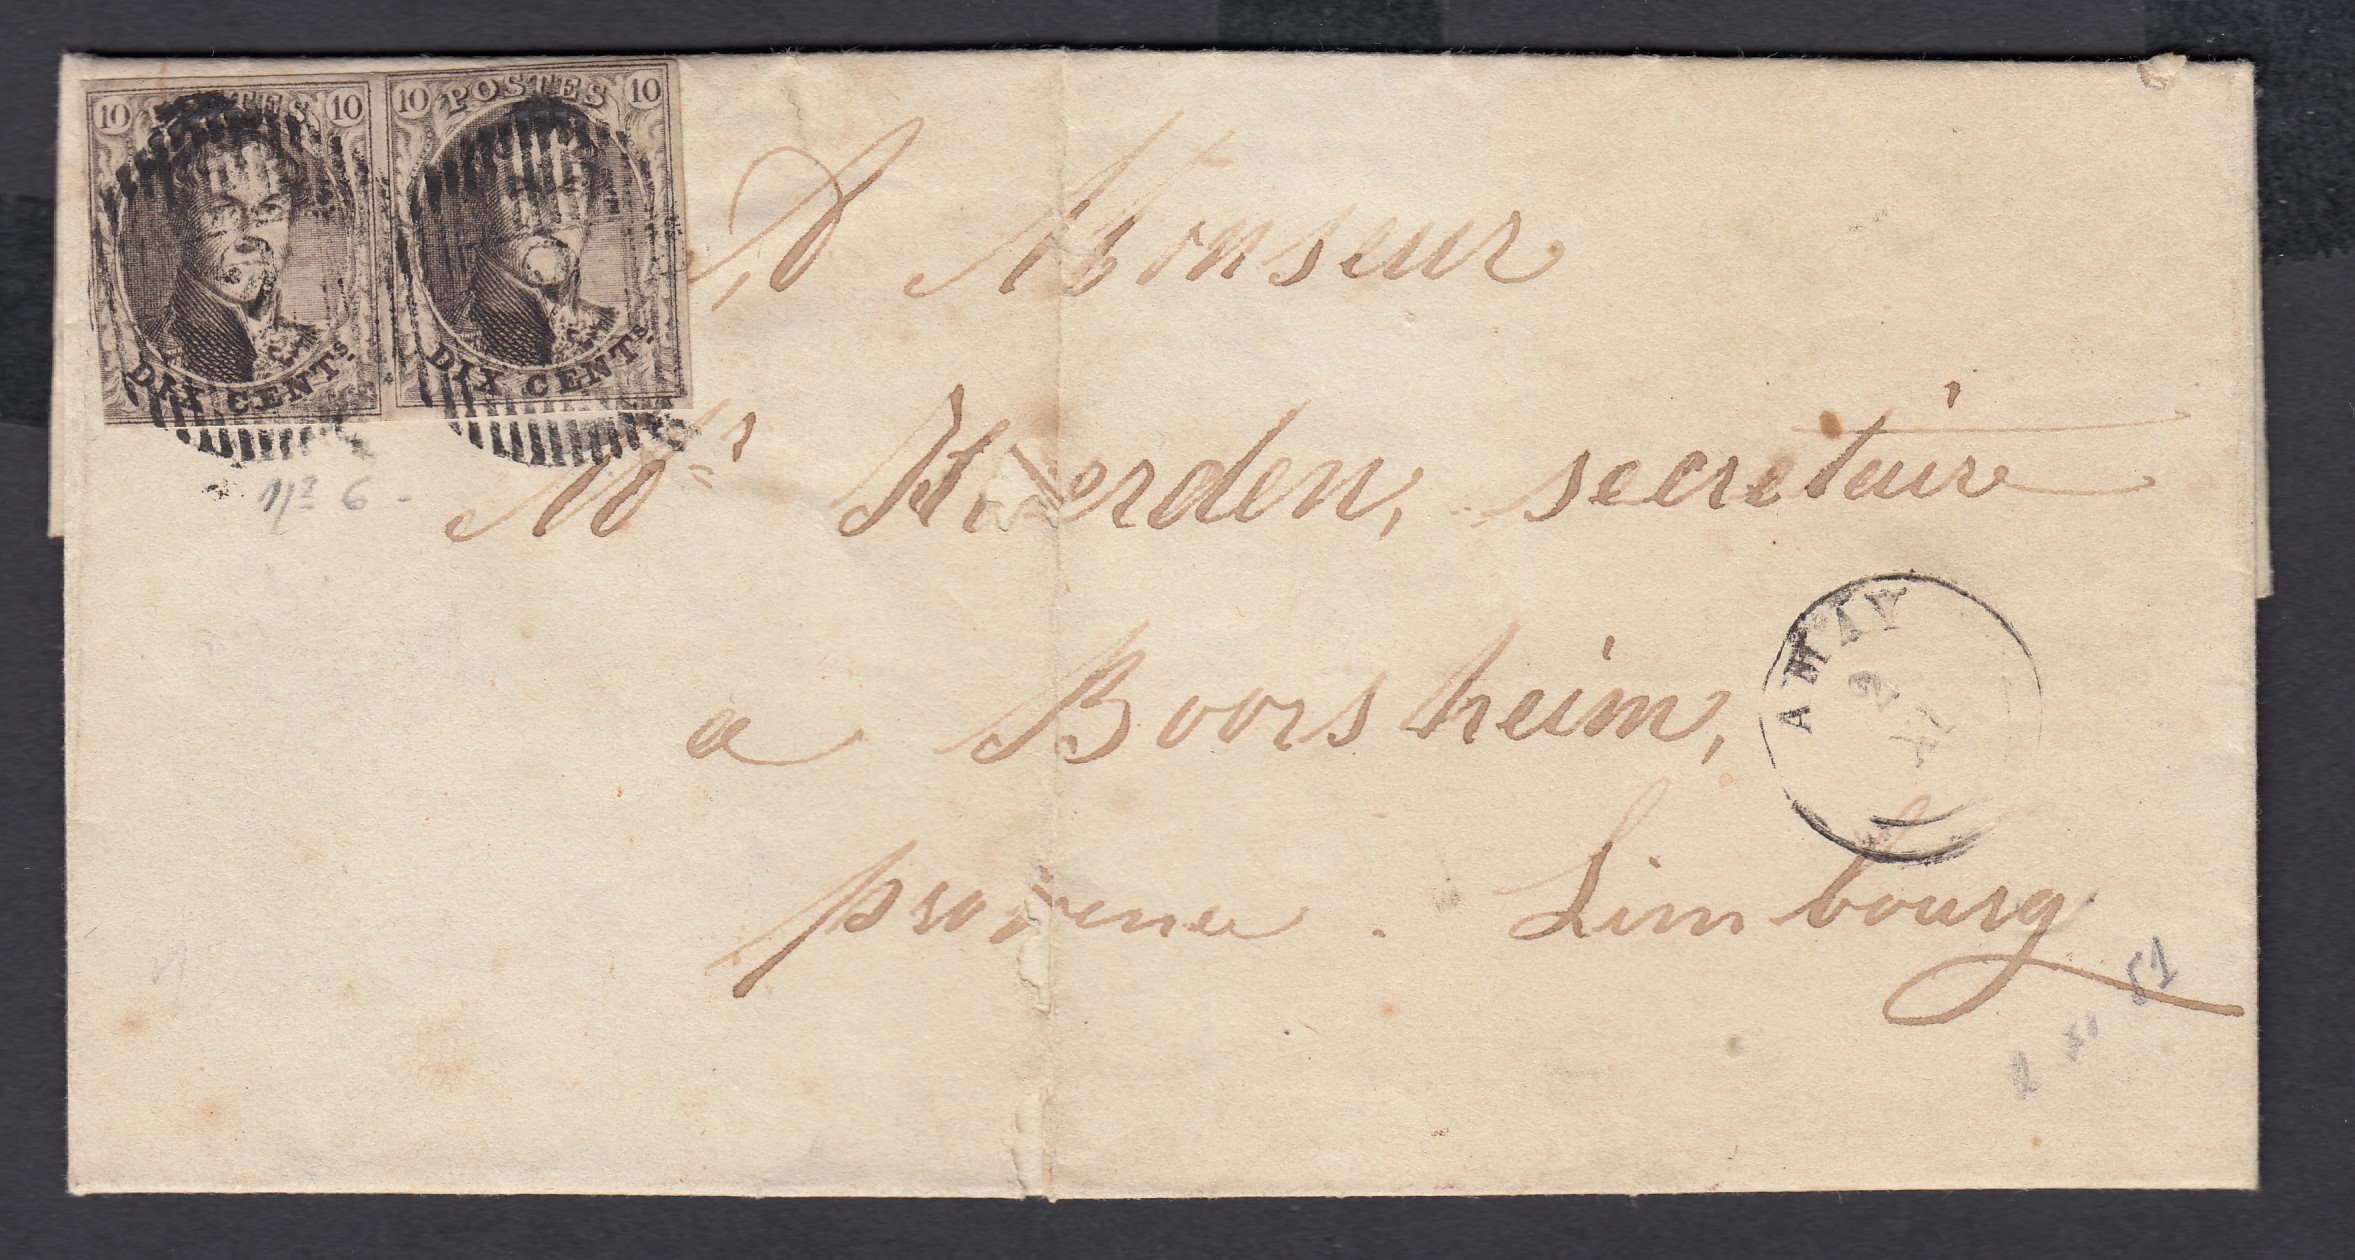 10 POSTES 10
DIX CENTs.
10 POSTES 10
DIX CENTs.
nº 6 -
A Monseur
Mr. Heerden, secretaire
AMAY
2
XI
a Boorsheim,
province. Limbourg
2 XI 51